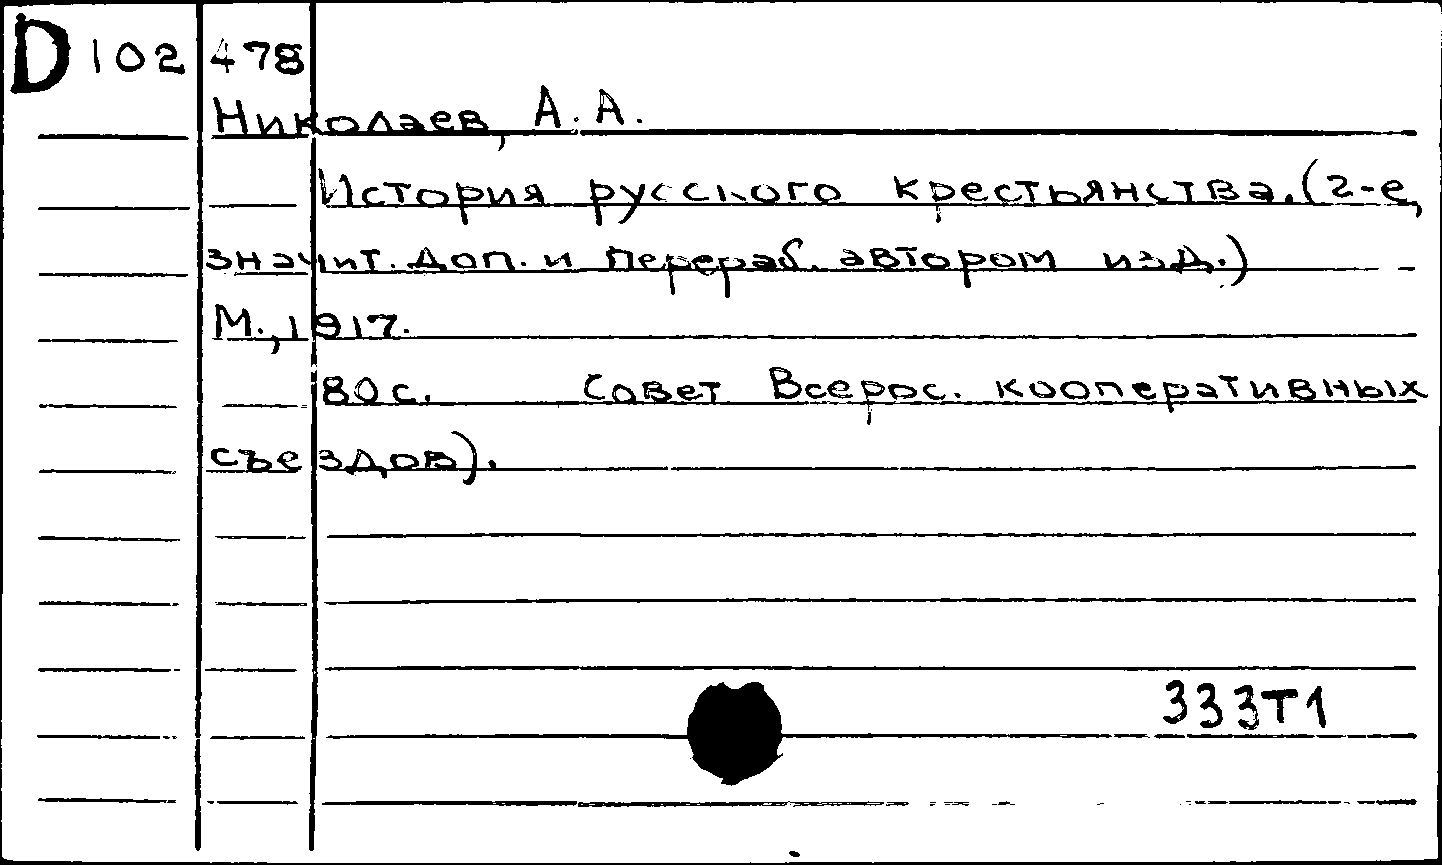 D 102 478
Николаев, А. А.
История русского крестьянства. (2-е,
значит. доп. и перераб. автором изд.)
М., 1917.
80 с. Совет Всерос. кооперативных
съездов).
333Т1